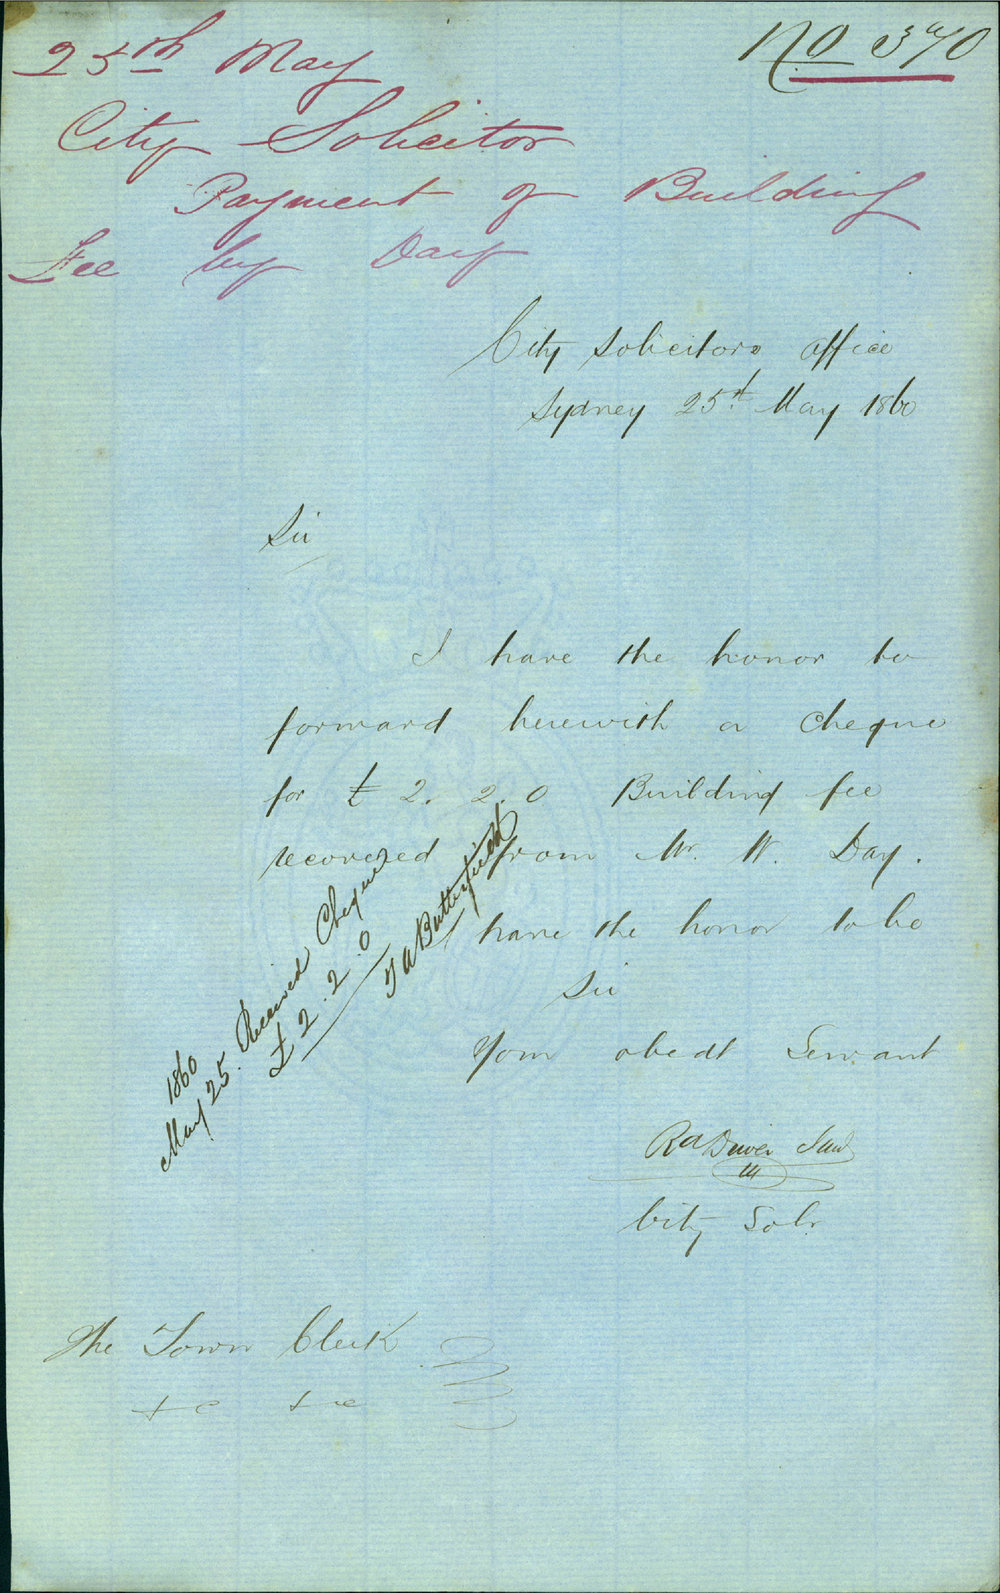 No 370
25th May
City Solicitor
Payment of Building
Fee by Day
City Solicitors Office
Sydney 25th May 1860
Sir
I have the honor to
forward herewith a Cheque
for £ 2. 2. 0 Building fee
recovered from Mr. W. Day.
I have the honor to be
Sir
Your obedt Servant
Rd Driver Junr
City Solr
The Town Clerk
&c &c
1860
May 25. Received Cheque
£ 2. 2. 0
Butterfield